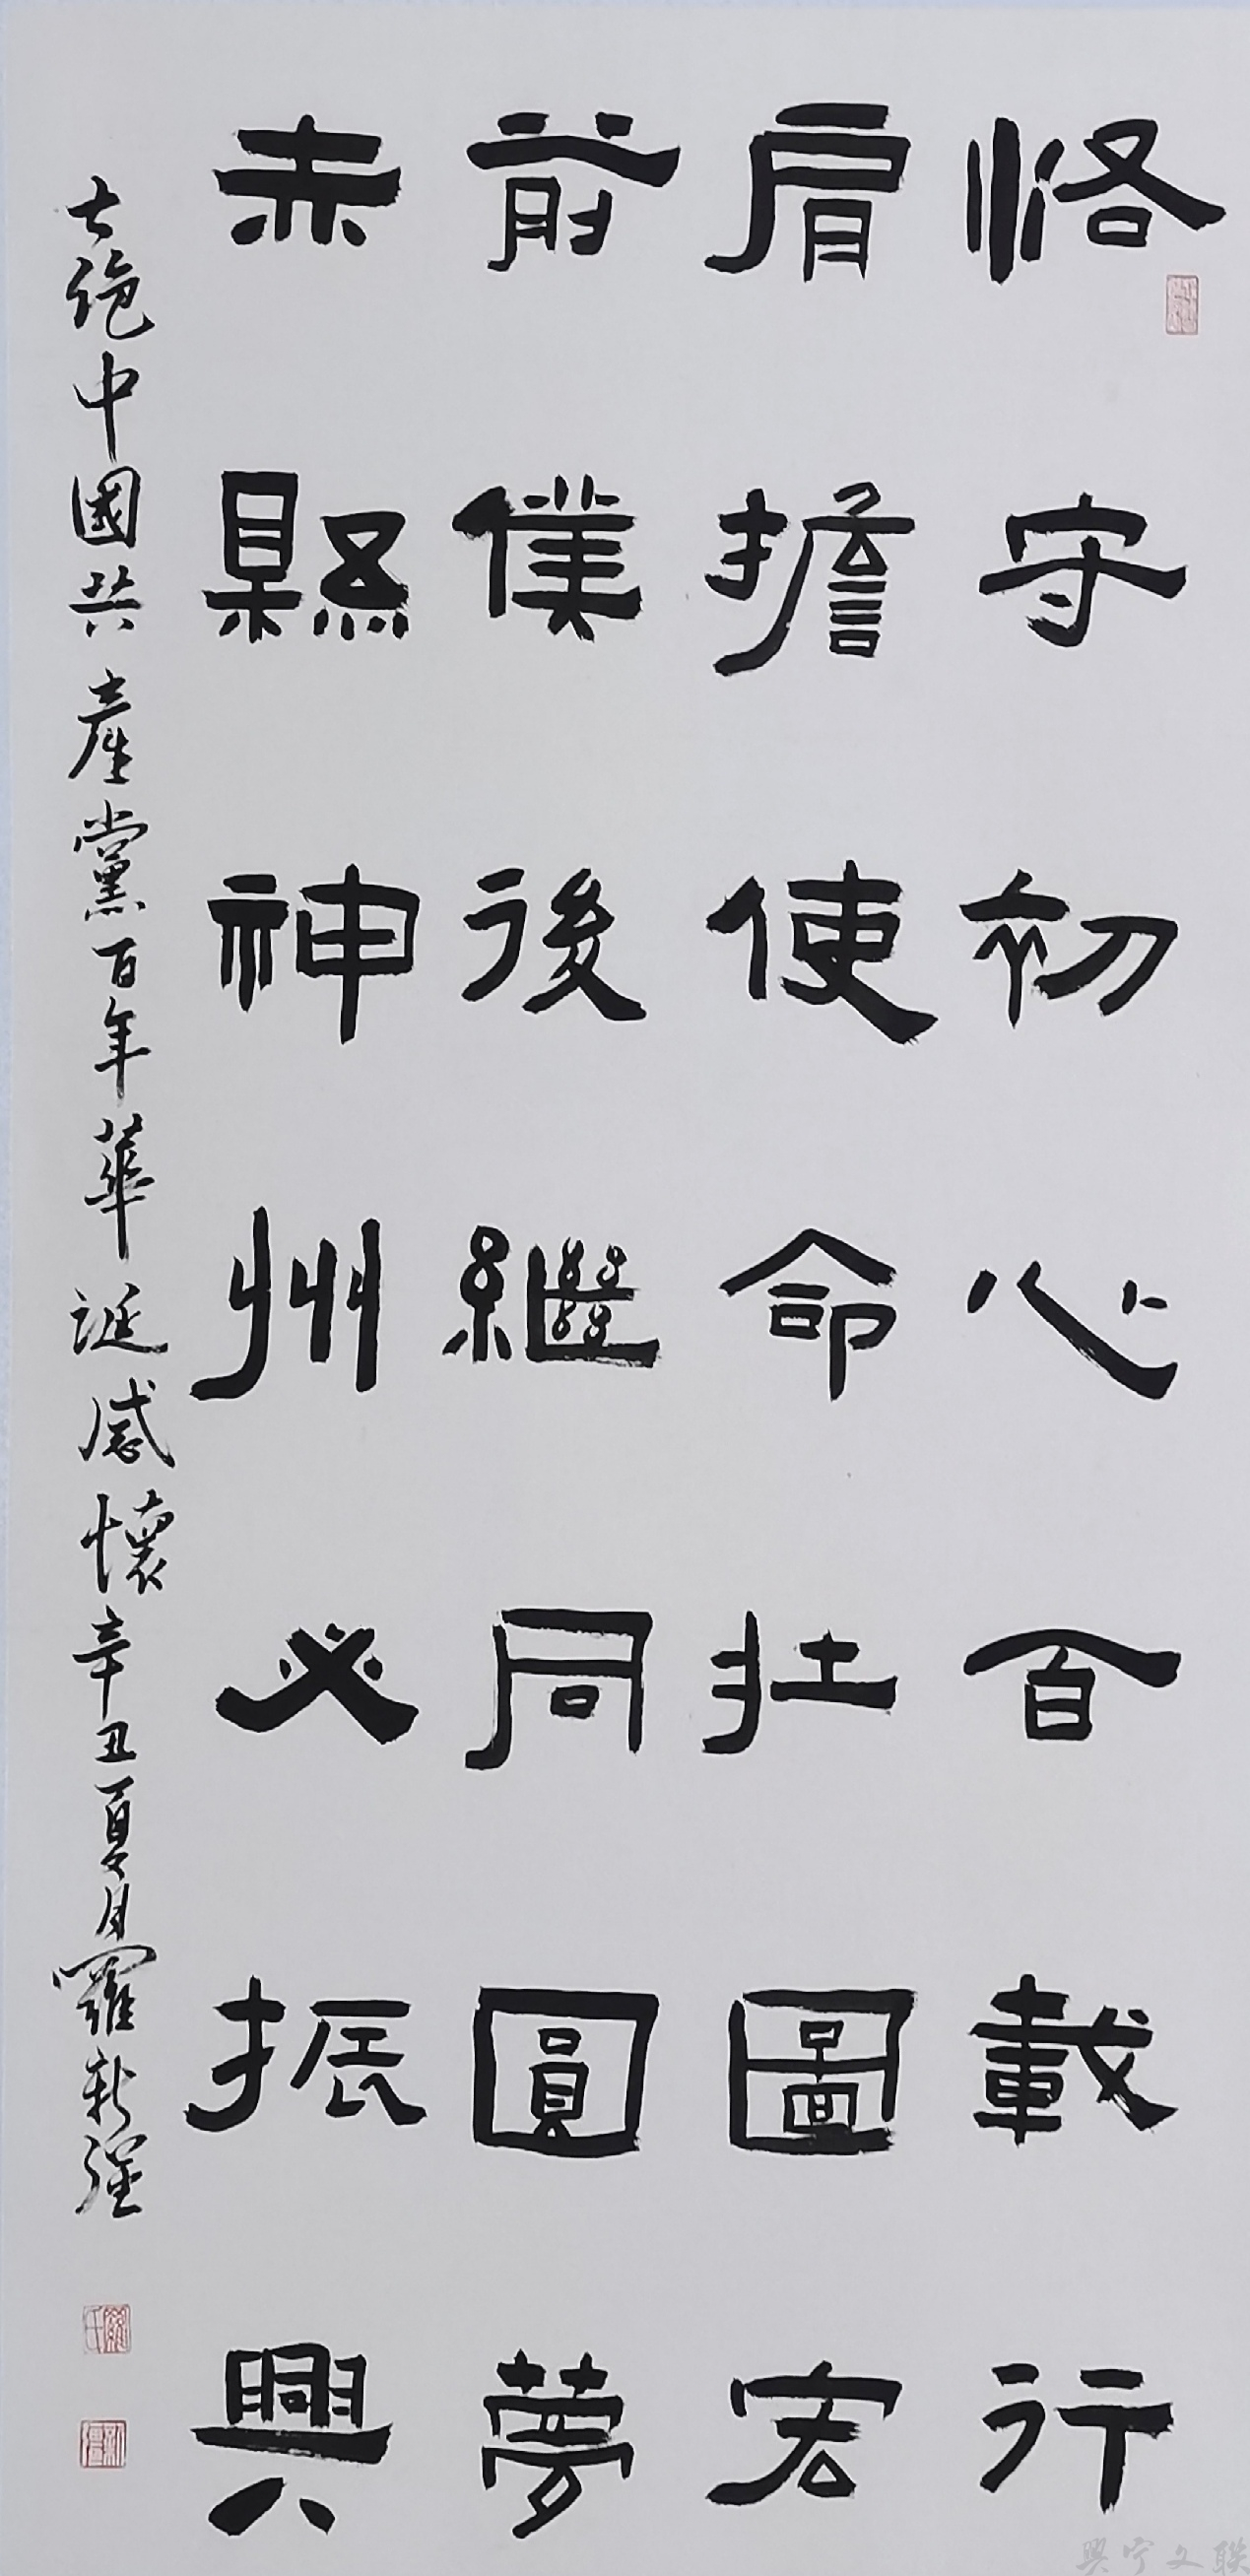 恪守初心百載行
肩擔使命壯圖宏
前僕後繼同圓夢
赤縣神州必振興
七絕中國共產黨百年華誕感懷辛丑夏月羅新強
羅氏
興宁文聯